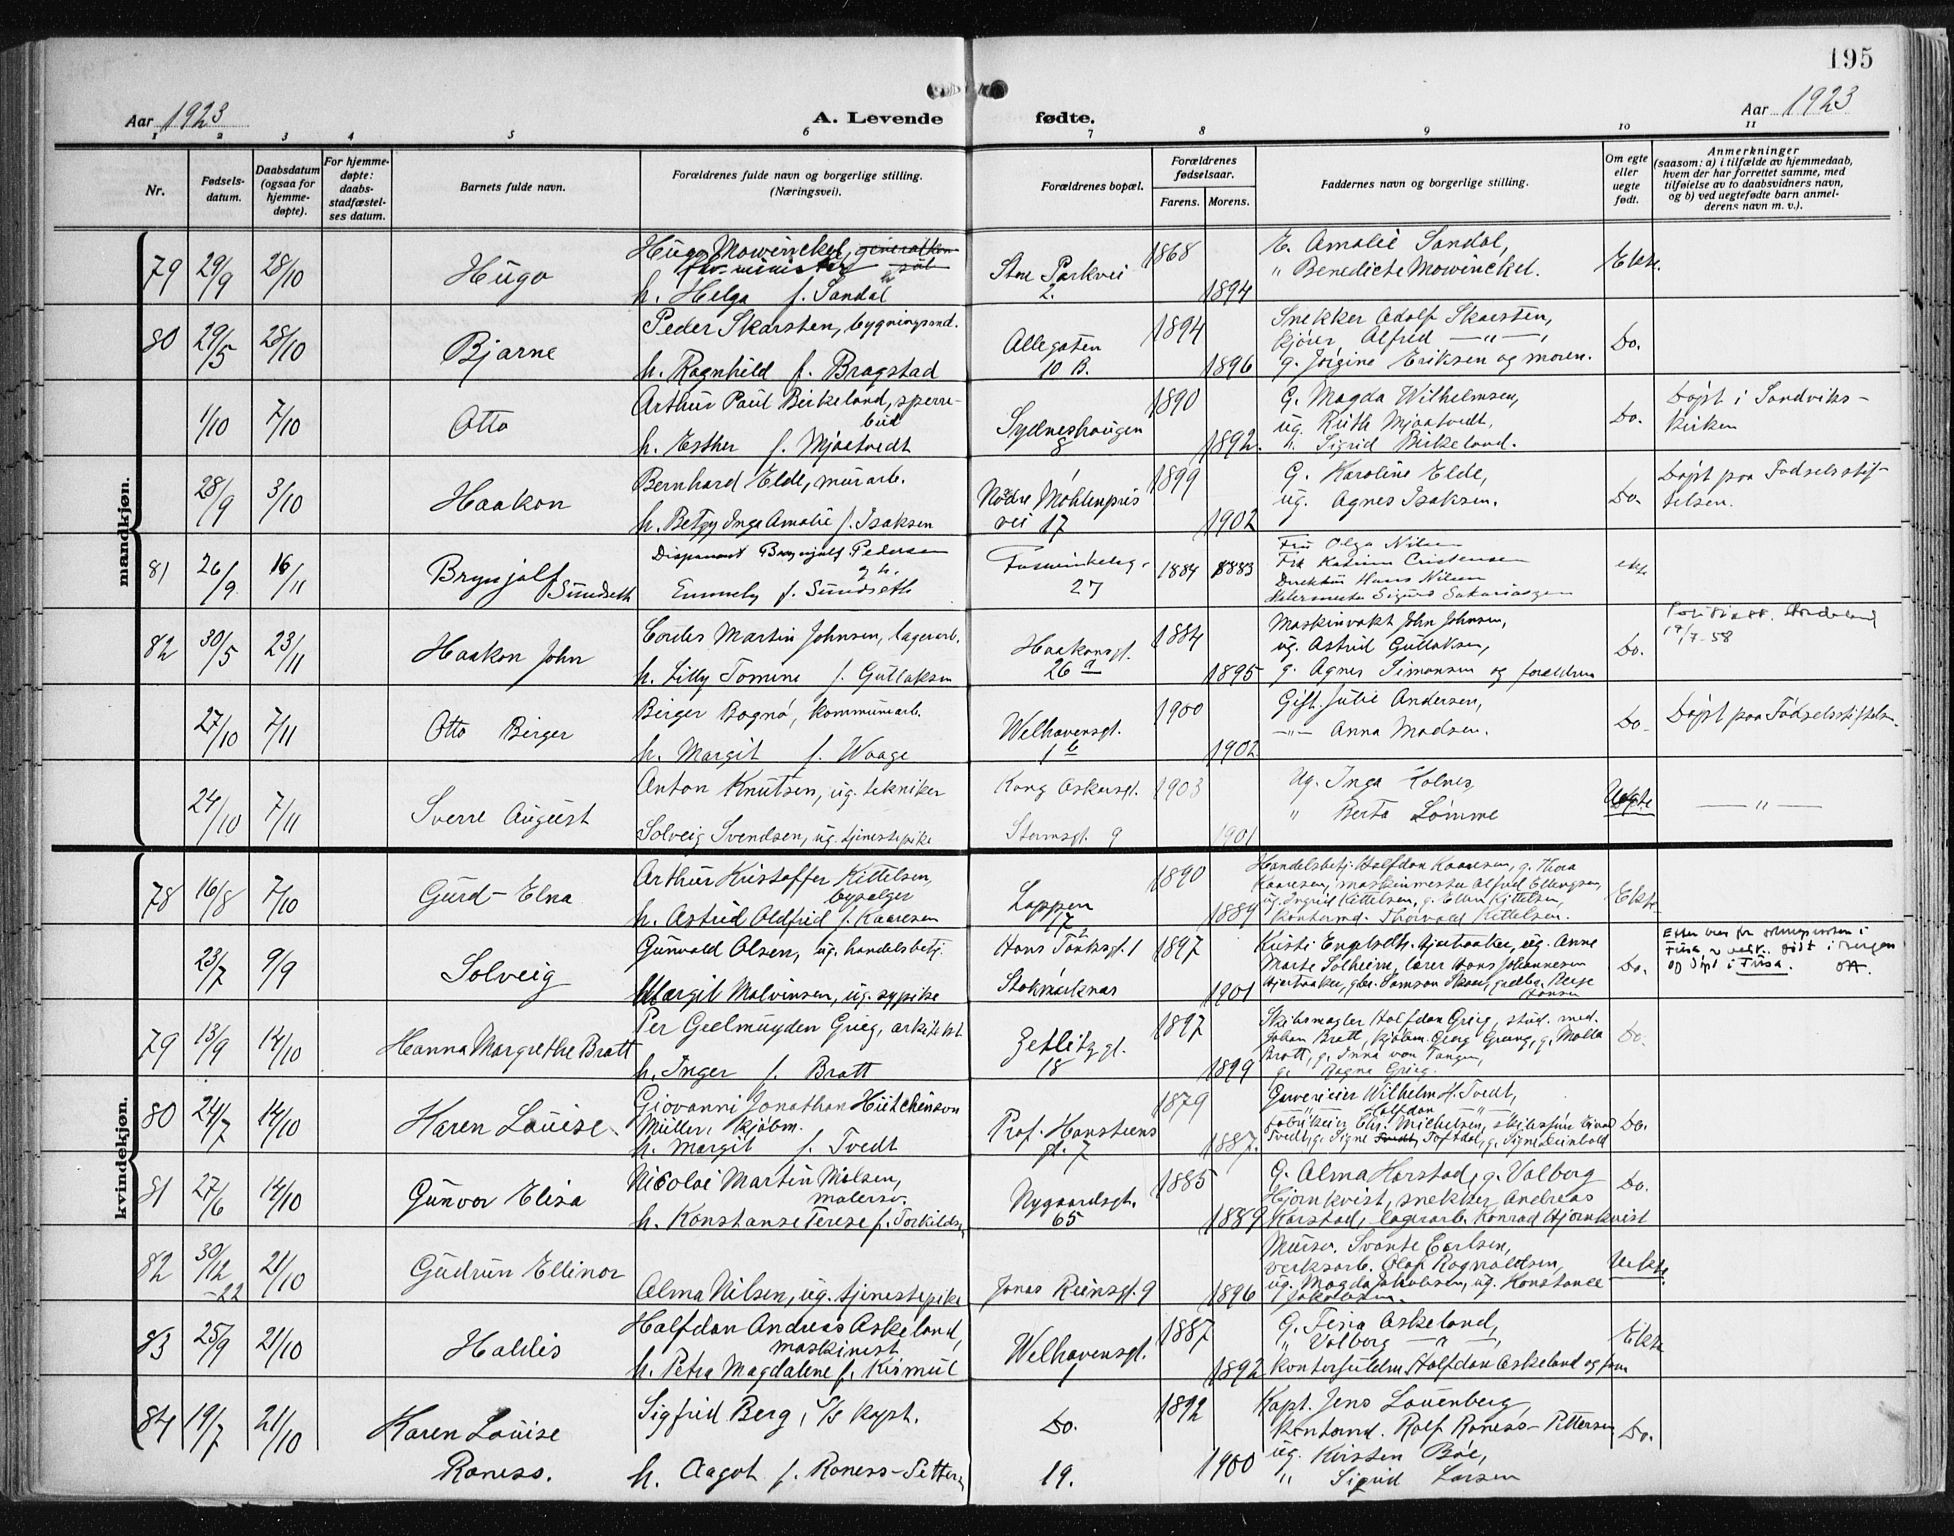 195
Aar 1923
A. Levende fødte.
Aar 1923
1 2 3 4 5 6 7 8 9 10 11
Nr.
Fødsels-
datum.
Daabsdatum
(ogsaa for
hjemme-
døpte).
For hjemme-
døpte:
daabs-
stadfæstel-
ses datum.
Barnets fulde navn.
Forældrenes fulde navn og borgerlige stilling.
(Næringsvei).
Forældrenes bopæl.
Forældrenes
fødselsaar.
Farens. Morens.
Faddernes navn og borgerlige stilling.
Om egte
eller
uegte
født.
Anmerkninger
(saasom: a) i tilfælde av hjemmedaab,
hvem der har forrettet samme, med
tilføielse av to daabsvidners navn,
og b) ved uegtefødte barn anmel-
derens navn m. v.).
mandkjøn.
79 29/9 28/10 Hugo
Hugo Mowinckel,
h. Helga f. Sandal
Store Parkvei
2.
1868 1894
E. Amalie Sandal,
" Benedicte Mowinckel.
Ekte.
80 29/5 28/10 Bjarne
Peder Skarsten, bygningssnd.
h. Ragnhild f. Bragstad
Allegaten
10 B.
1894 1896
Snekker Adolf Skarsten,
kjører Alfred —"—,
g. Jørgine Eriksen og moren.
Do.
1/10 7/10 Otto
Arthur Paul Birkeland, sperre-
bud
h. Esther f. Mjaatvedt
Sydneshaugen
8
1890 1892.
G. Magda Wilhelmsen,
ug. Ruth Mjaatvedt,
h. Sigrid Birkeland.
Do.
Døpt i Sandviks-
kirken
28/9 3/10 Haakon
Bernhard Elde, murarb.
h. Betzy Inga Amalie f. Isaksen
Nedre Møhlenpris
vei 17
1899 1902
G. Karoline Elde,
ug. Agnes Isaksen.
Do.
Døpt paa Fødselsstif-
telsen.
81 26/9 16/11 Brynjolf
Sundseth
Disponent Brynjolf Pedersen
og h.
Emmely f. Sundseth
27
1884 1883
Fru Olga Nilsen
Fru Katrine Cristensen
Direktør Hans Nilsen
Malermester Sigurd
ekte
82 30/5 23/11 Haakon John
Cordes Martin Johnsen, lagerarb.
h. Lilly Tomine f. Gullaksen
Haakonsgt.
26 a
1884 1895
Maskinvakt John Johnsen,
ug. Astrid Gullaksen,
g. Agnes Simonsen og forældrene
Do.
19/7-58
27/10 7/11 Otto Birger
Birger Bognø, kommunearb.
h. Margit f. Waage
Welhavensgt.
1 b
1900 1902
Gift. Julie Andersen,
—"— Anna Madsen.
Do.
Døpt paa Fødselsstiftelsen.
24/10 7/11 Sverre August
Anton Knutsen, ug. tekniker
Solveig Svendsen, ug. tjenestepike
Kong Oskarsgt.
Stormsgt. 9
1903 1901
Ug. Inga Kolnes,
" Berta Lømme
Uegte
—"—
kvindekjøn.
78 16/8 7/10 Gurd-Elna
Arthur Kristoffer Kittelsen,
byselger
h. Astrid Oldfrid f. Kaaresen
Loppen
17
1890 1889
Handelsbetj. Halfdan Kaaresen, g. Thora
Kaaresen, maskinmester Alfred Ellingsen,
ug. Ingrid Kittelsen, g. Ellen Kittelsen,
kontormd. Thorvald Kittelsen.
Ekte.
23/7 9/9 Solveig
Gunvald Olsen, ug. handelsbetj.
Margit Malvinsen, ug. sypike
Hans Tanksgt. 1
Stokmarknes
1897 1901
Kirsti Engelseth, ug. Anne
Marte Solheim, lærer Hans Johannesen
Do.
i Fusa.
79 13/9 14/10 Hanna Margrethe Bratt
Per Geelmuyden Grieg, arkitekt
h. Inger f. Bratt
Zetlitzgt.
18
1897 1899
Skibsmægler Halfdan Grieg, stud. med.
Johan Bratt, kjøbm. Georg Grieg, g. Molla
Bratt, g. Inna von Tangen,
g. Magna Grieg.
Do.
80 24/7 14/10 Karen Louise
Giovanni Jonathan Hutchinson
Müller, kjøbm.
h. Margit f. Tvedt
Prof. Hansteens
gt. 7
1879 1887.
Garverieier Wilhelm H. Tvedt,
" Halfdan —"—
fabrikeier Chr. Michelsen, skibsfør Einar
Tvedt, g. Signe Toftdal, g. Signe Reinhold
Do.
81 27/6 14/10 Gunvor Elisa
Nicolai Martin Nielsen,
malersv.
h. Konstanse Terese f. Torkildsen
Nygaardsgt.
65
1885 1889
G. Alma Harstad, g. Valborg
Hjørnkvist, snekker Andreas
Karstad, lagerarb. Konrad Hjørnkvist
Do.
82 30/12-22 21/10 Gudrun Ellinor
Alma Nilsen, ug. tjenestepike
Jonas Reinsgt. 9
1896
Murer. Svante Carlsen,
verksarb. Olaf Ragnaldsen,
ug. Magda Jakobsen, ug. Konstance
Jakobsen.
Uekte.
83 25/9 21/10 Haldis
Halfdan Andreas Askeland,
maskinist
h. Petra Magdalene f. Kismul
Welhavensgt.
1887 1892
G. Fina Askeland,
" Valborg —"—,
kontorfuldm. Halfdan Askeland og faren
Ekte
84 19/7 21/10 Karen Louise
Roness.
Sigfrid Berg, S/S kapt.
h. Aagot f. Roness-Pettersen
Do.
19.
1892 1900
Kapt. Jens Louenberg,
kontord. Rolf Roness-Pettersen
ug. Kirsten Bøe,
" Sigrid Larsen
Do.